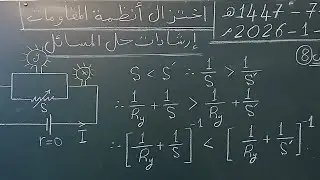 اختزال أنظمة المقاومات
إرشادات حل المسائل
7 - 1447هـ
1 - 2026م
8
S < S′ ∴ 1/S > 1/S′
∴ 1/Ry + 1/S > 1/Ry + 1/S′
∴ [1/Ry + 1/S]⁻¹ < [1/Ry + 1/S′]⁻¹
S
r=0
I